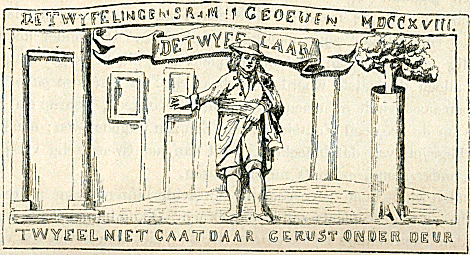 DE TWYFELINGEN SR.M:!! GEOEWEN MDCCXVIII.
DE TWYFE LAAR
TWYEEL NIET CAAT DAAR GERUST ONDER DEUR